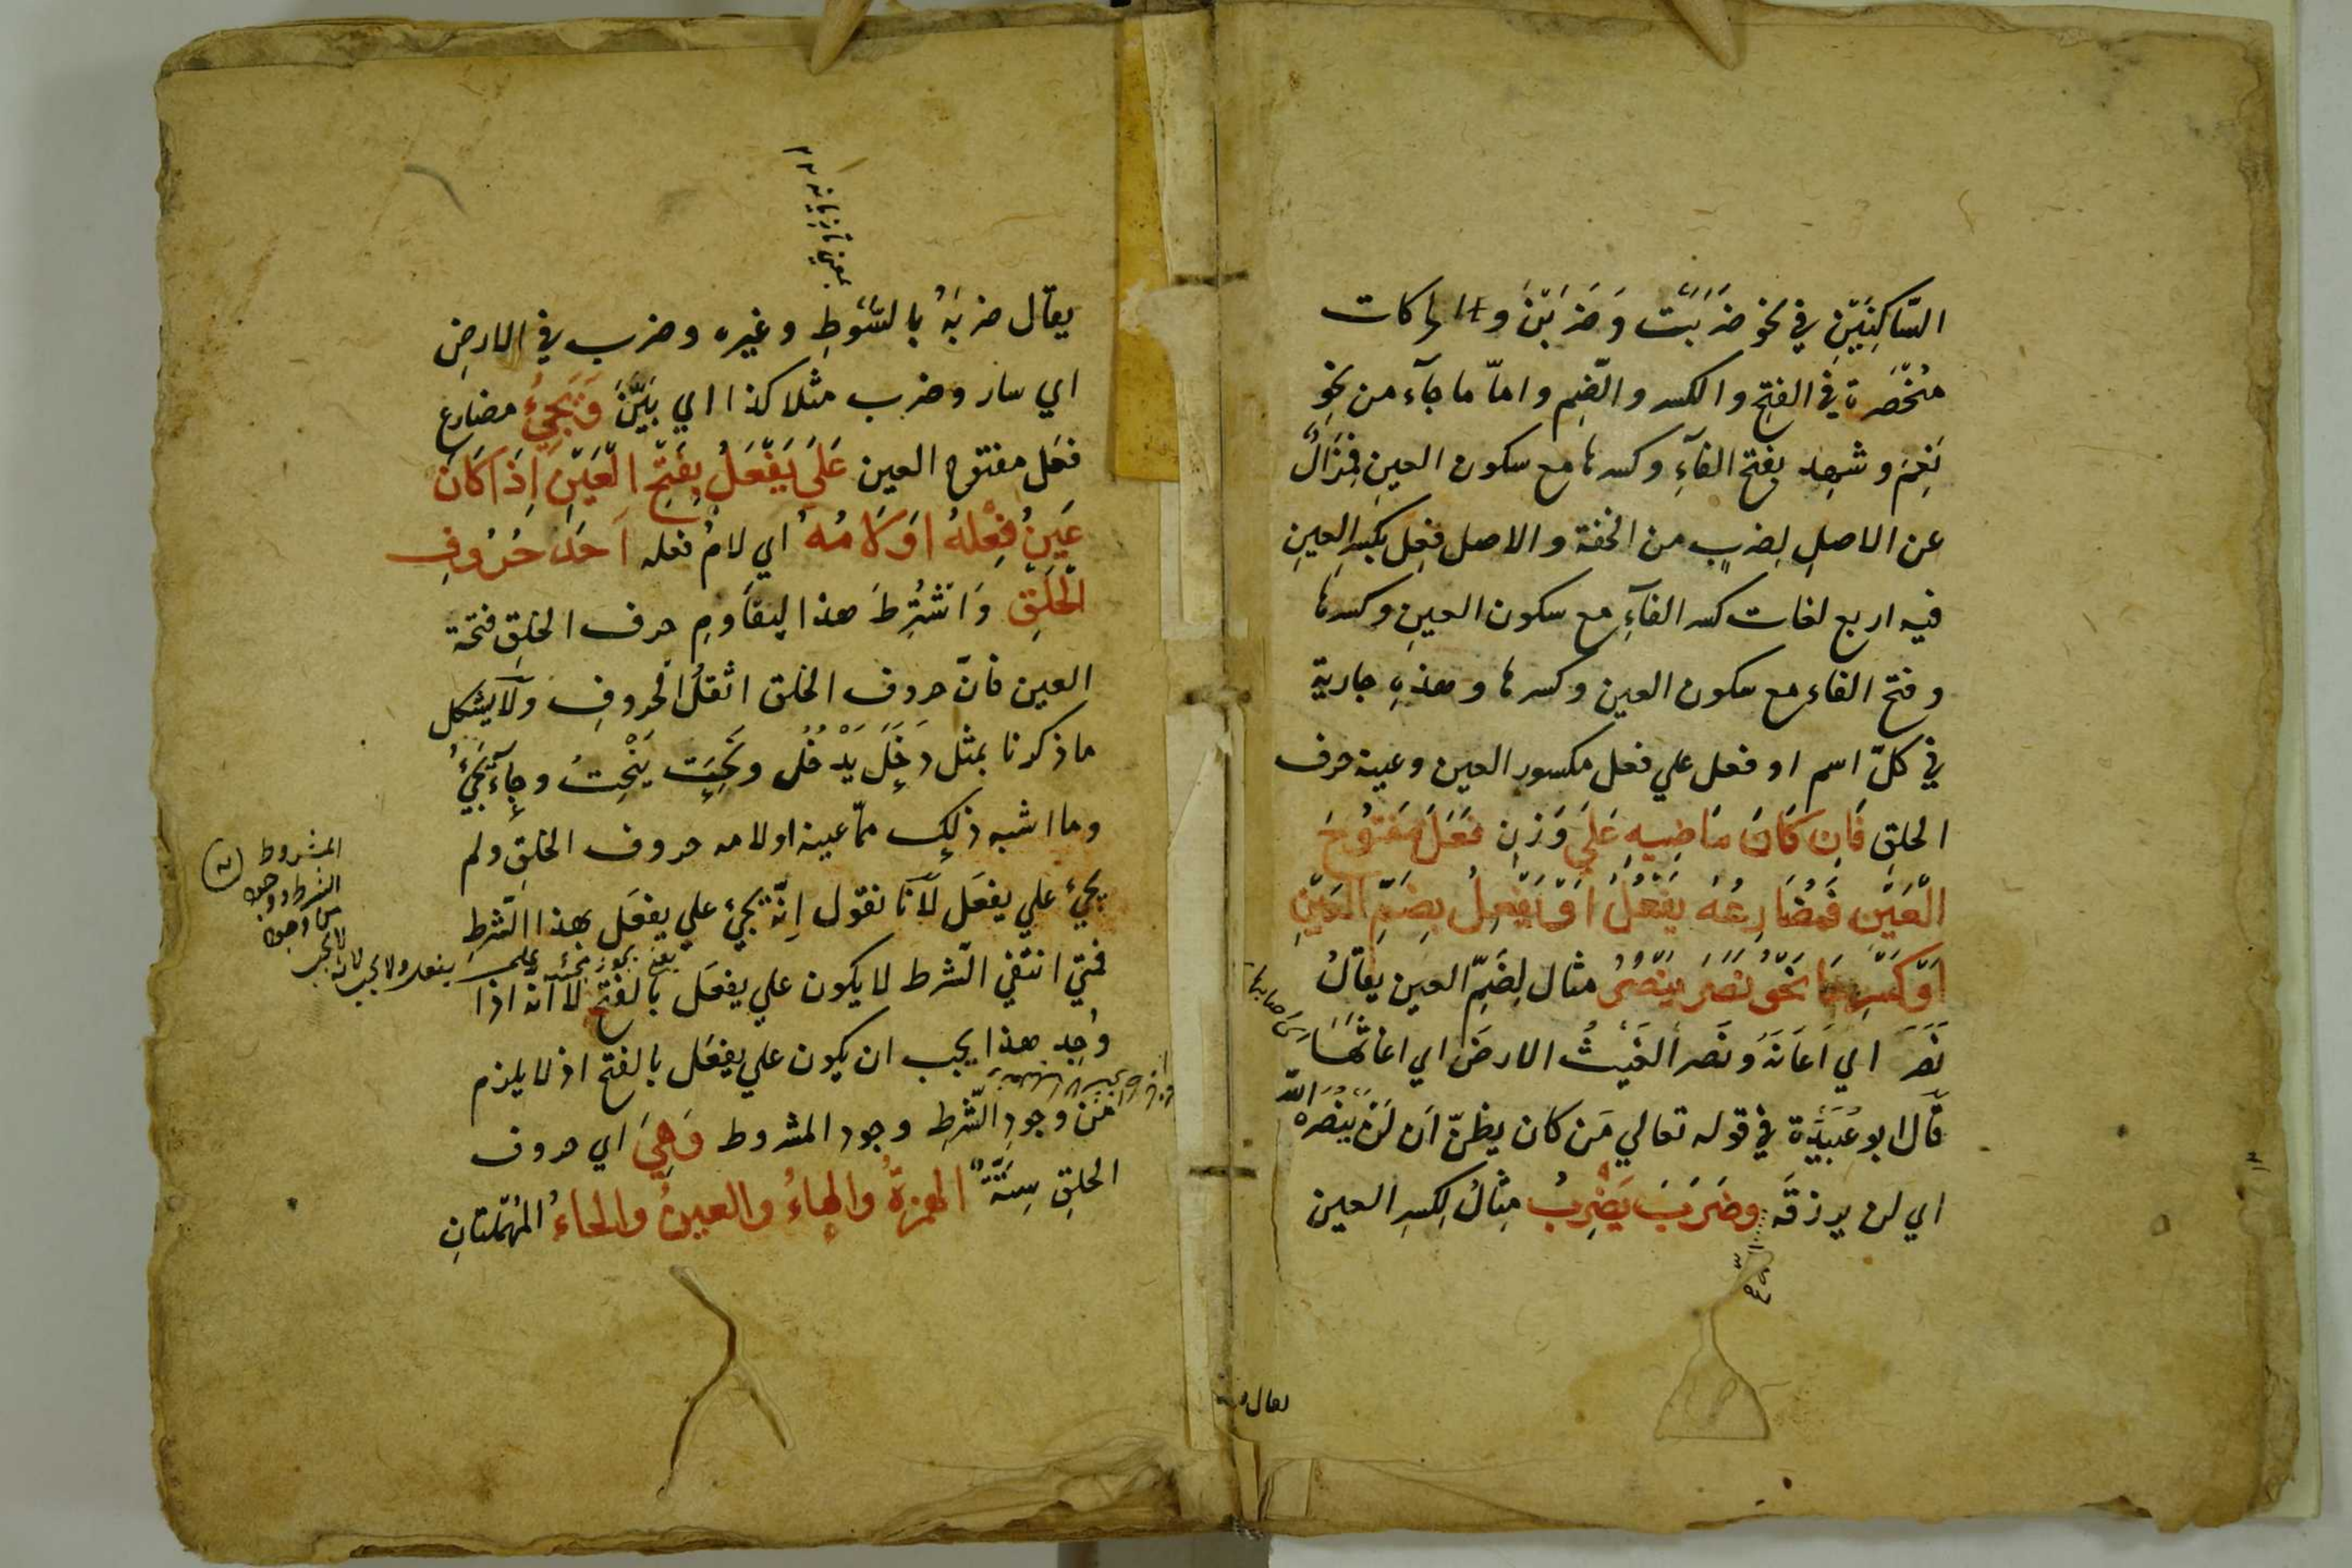 السّاكِنَيْنِ في نحو ضَرَبَتْ وَضَرَبْنَ والحركات
منحصرة في الفتح والكسر والضّم وامّا ما جآء من نحوِ
نَعِمَ وشَهِد بفتح الفآءِ وكسرها مع سكون العينِ فمُزَالٌ
عن الاصلِ لِضربٍ من الخفة والاصل فَعِل بكسرِ العينِ
فيه اربع لغات كسر الفآءِ مع سكون العينِ وكسرها
وفتح الفاء مع سكون العين وكسرها وهذهِ جارية
في كلّ اسم او فعل علي فعل مكسور العين وعينه حرف
الحلقِ فَاِن كَانَ مَاضِيهِ عَلَي وَزنِ فَعَلَ مَفتُوحَ
الْعَيْنِ فَمُضَارِعُهُ يَفْعُلُ اَوْ يَفْعِلُ بِضَمِّ الْعَيْنِ
اَوْ كَسْرِهَا نَحْوُ نَصَرَ يَنْصُرُ مثال لِضَمِّ العين يقالُ
نَصَرَ اي اَعَانَهُ ونَصر الغَيْثُ الارضَ اي اغاثَهَا
قَالَ ابو عُبَيْدَة في قوله تعالي مَن كان يظنّ اَن لَنْ يَنْصُرَه اللّه
اي لن يرزقَه وضَرَبَ يَضْرِبُ مِثالٌ لِكسرِ العين
يقال
يقال ضربَهُ بالسَّوطِ وغيره وضرب في الارضِ
اي سار وضرب مثلا كذا اي بَيَّنَ وَيَجِيْءُ مضارع
فعَل مفتوح العين عَلَي يَفْعَلُ بِفَتْحِ الْعَيْنِ اِذَا كَانَ
عَينُ فِعْلِهُ اَوْ لَامُهُ اي لامُ فعله اَحَدَ حُرُوفِ
الْحَلْقِ وَاشْتُرِطَ هذا ليقاومِ حرف الحلقِ فتحة
العين فانّ حروف الحلق اثقلُ الحروفِ ولَا يشكل
ما ذكرنا بمثل دَخَلَ يَدْخُلُ ونَحَتَ يَنْحِتُ وجآءَ يَجِيْءُ
وما اشبه ذلك ممّا عينه اولامه حروف الحلقِ ولم
يجيْ علي يفعَل لِاَنّا نقول اِنّه يجيْ علي يفعَل بهذا الشّرطِ
فمتي انتفي الشّرط لا يكون علي يفعَل بالفتح لا انه اذا
وُجد هذا يجب ان يكون علي يفعَل بالفتح اذ لا يلزم
مِن وجودِ الشّرطِ وجود المشروط وَهِيَ اي حروف
الحلقِ سِتَّةٌ الهمزةُ والهاءُ والعينُ والحاءُ المُهمَلتانِ
المشروط